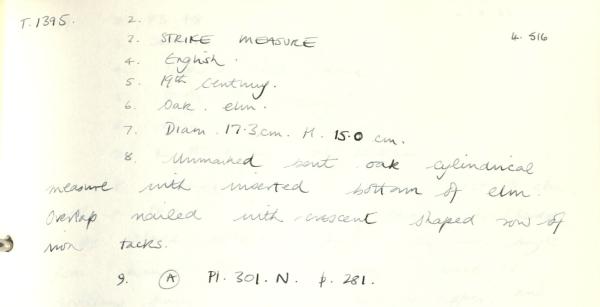 T.1395. 2.
3. STRIKE MEASURE 4. 516
4. English.
5. 19th Century.
6. Oak. elm.
7. Diam. 17.3 cm. H. 15.0 cm.
8. Unmarked bent oak cylindrical
measure with inserted bottom of elm.
Overlap nailed with crescent shaped row of
iron tacks.
9. (A) Pl. 301. N. p. 281.